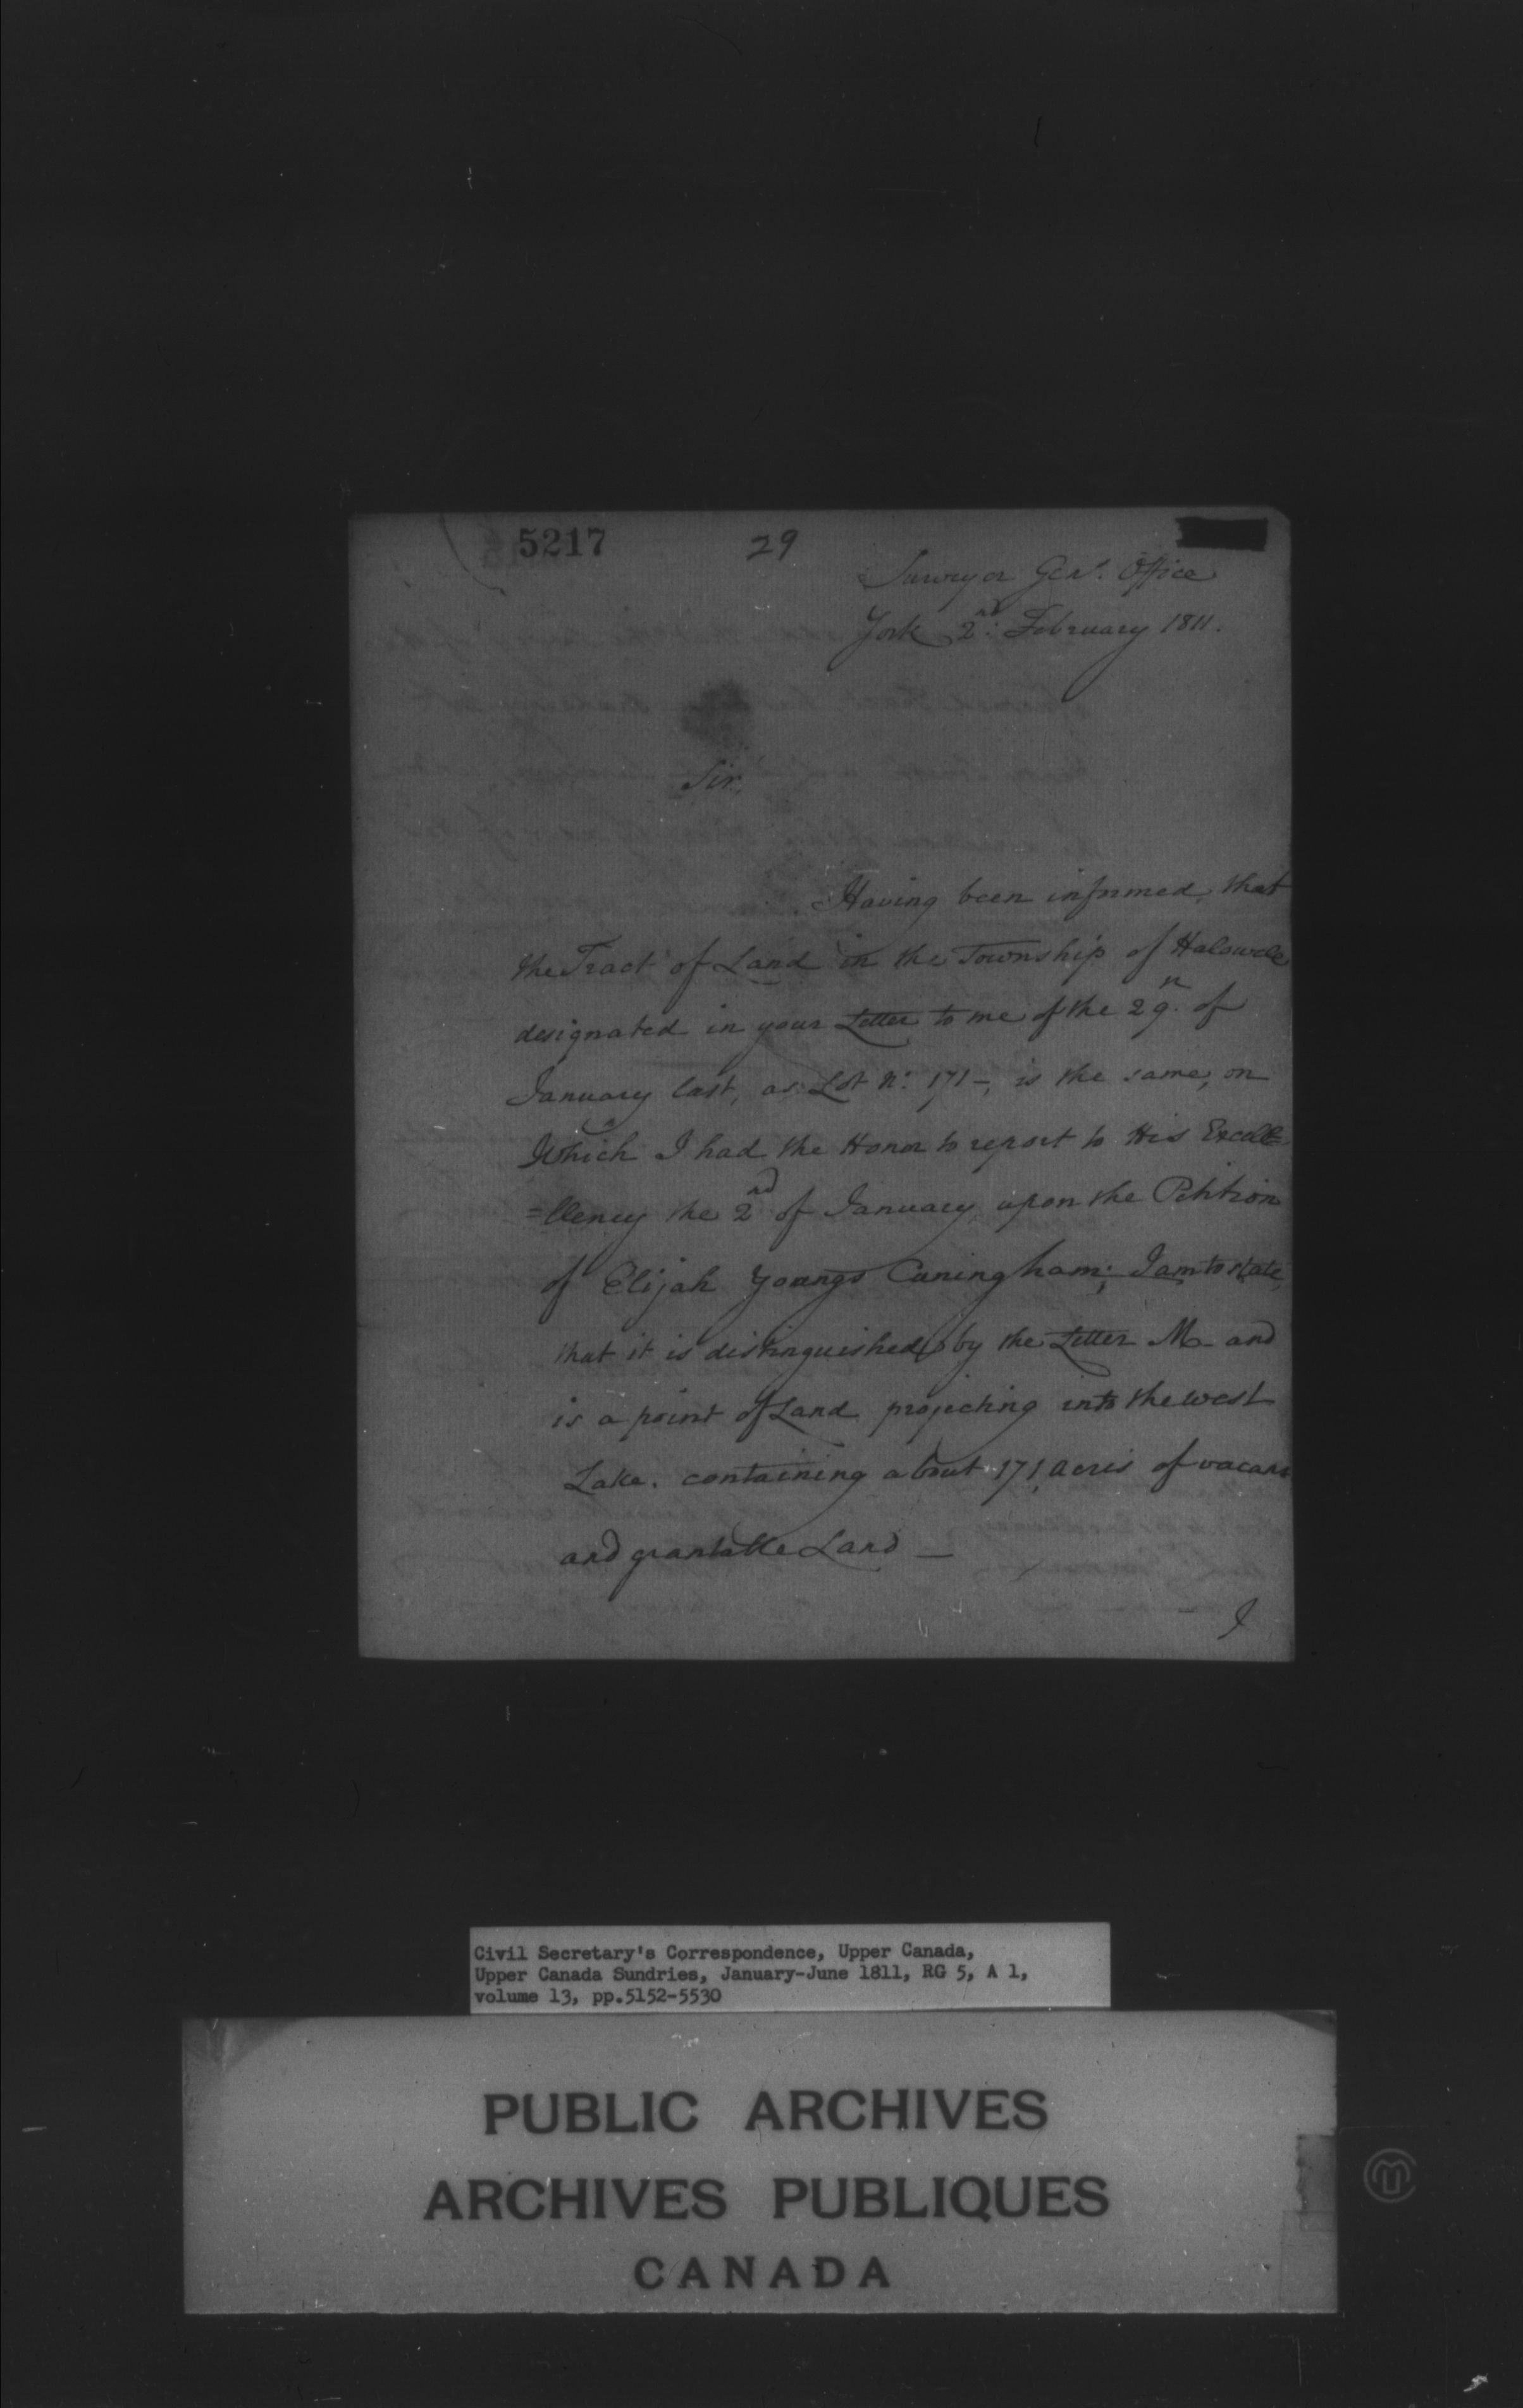 5217
29
Surveyor Genl. Office
York 2nd: February 1811.
Sir,
Having been informed, that
the Tract of Land in the Township of Halowell
designated in your Letter to me of the 29th. of
January last, as Lot No: 171 -, is the same, on
Which I had the Honor to report to His Excelle-
=llency the 2nd of January upon the Petition
of Elijah Youngs Cuningham; I am to state,
that it is distinguished by the Letter M - and
is a point of Land projecting into the west
Lake. containing about 171 acres of vacant
and grantable Land —
I
Civil Secretary's Correspondence, Upper Canada,
Upper Canada Sundries, January-June 1811, RG 5, A 1,
volume 13, pp.5152-5530
PUBLIC ARCHIVES
ARCHIVES PUBLIQUES
CANADA